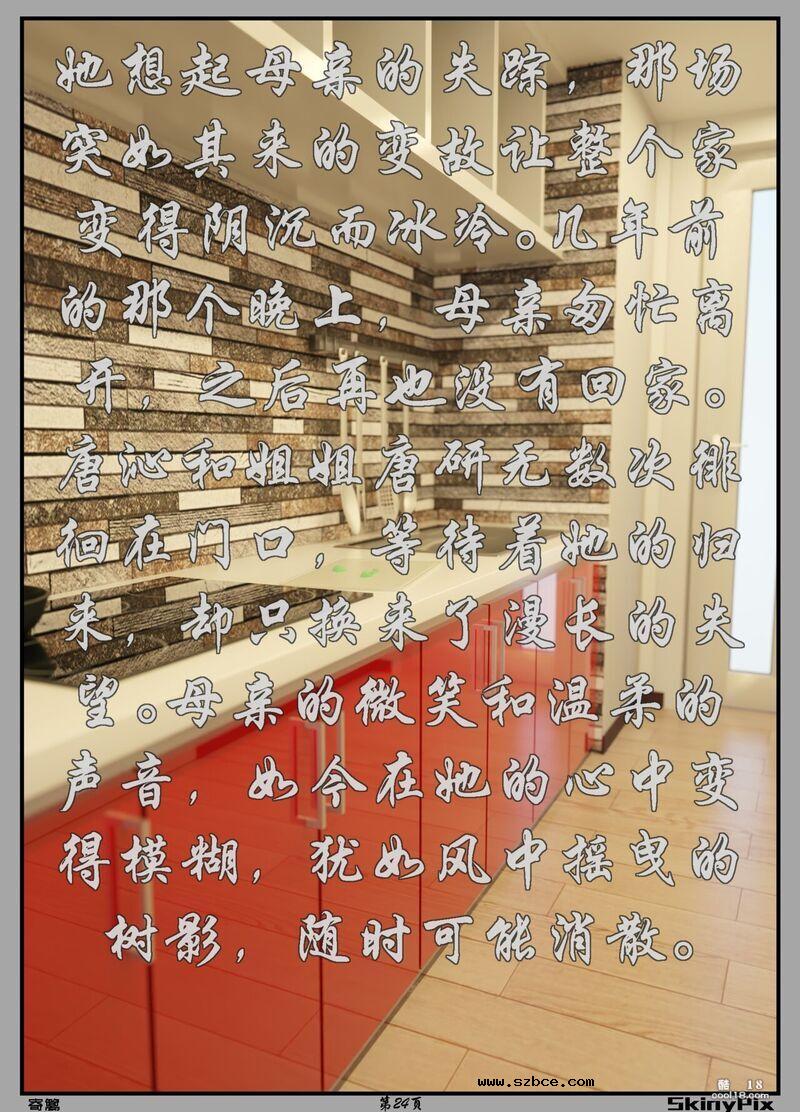 她想起母亲的失踪，那场
突如其来的变故让整个家
变得阴沉而冰冷。几年前
的那个晚上，母亲匆忙离
开，之后再也没有回家。
唐沁和姐姐唐研无数次徘
徊在门口，等待着她的归
来，却只换来了漫长的失
望。母亲的微笑和温柔的
声音，如今在她的心中变
得模糊，犹如风中摇曳的
树影，随时可能消散。
www.szbce.com
酷 18
cool18.com
第24頁
SkinyPix